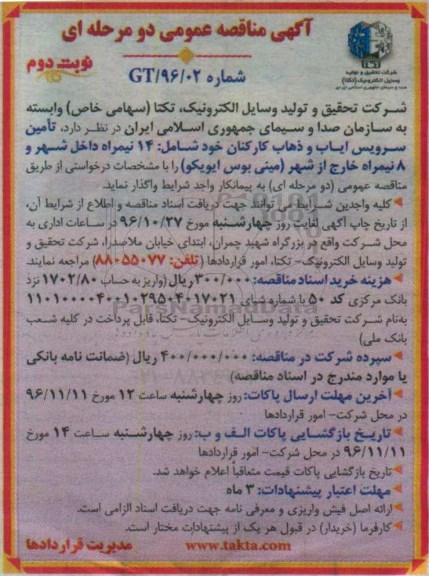 آگهی مناقصه عمومی دو مرحله ای
نوبت دوم
شماره GT/۹۶/۰۲
شرکت تحقیق و تولید
وسایل الکترونیک (تکتا)
شرکت تحقیق و تولید وسایل الکترونیک، تکتا (سهامی خاص) وابسته
به سازمان صدا و سیمای جمهوری اسلامی ایران در نظر دارد، تأمین
سرویس ایاب و ذهاب کارکنان خود شامل: ۱۴ نیمراه داخل شهر و
۸ نیمراه خارج از شهر (مینی بوس ایویکو) را با مشخصات درخواستی از طریق
مناقصه عمومی (دو مرحله ای) به پیمانکار واجد شرایط واگذار نماید.
کلیه واجدین شرایط می توانند جهت دریافت اسناد مناقصه و اطلاع از شرایط آن،
از تاریخ چاپ آگهی لغایت روز چهارشنبه مورخ ۹۶/۱۰/۲۷ در ساعات اداری به
محل شرکت واقع در بزرگراه شهید چمران، ابتدای خیابان ملاصدرا، شرکت تحقیق و
تولید وسایل الکترونیک- تکتا، امور قراردادها (تلفن: ۸۸۰۵۵۰۷۷) مراجعه نمایند.
هزینه خرید اسناد مناقصه: ۳۰۰/۰۰۰ ریال (واریز به حساب ۱۷۰۲/۸۰ نزد
بانک مرکزی کد ۵۰ با شماره شبای
به‌نام شرکت تحقیق و تولید وسایل الکترونیک- تکتا، قابل پرداخت در کلیه شعب
بانک ملی)
سپرده شرکت در مناقصه: ۴۰۰/۰۰۰/۰۰۰ ریال (ضمانت نامه بانکی
یا موارد مندرج در اسناد مناقصه)
آخرین مهلت ارسال پاکات: روز چهارشنبه ساعت ۱۲ مورخ ۹۶/۱۱/۱۱
در محل شرکت- امور قراردادها
تاریخ بازگشایی پاکات الف و ب: روز چهارشنبه ساعت ۱۴ مورخ
۹۶/۱۱/۱۱ در محل شرکت- امور قراردادها
تاریخ بازگشایی پاکات قیمت متعاقباً اعلام خواهد شد.
مهلت اعتبار پیشنهادات: ۳ ماه
ارائه اصل فیش واریزی و معرفی نامه جهت دریافت اسناد الزامی است.
کارفرما (خریدار) در قبول هر یک از پیشنهادات مختار است.
www.takta.com
مدیریت قراردادها
ParsNamadData